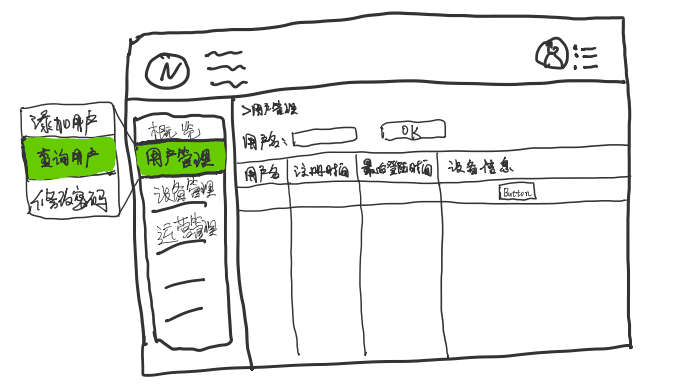 N
添加用户
查询用户
修改密码
概览
用户管理
设备管理
运营管理
>用户管理
用户名:
OK
用户名 注册时间 最后登陆时间 设备信息
Button